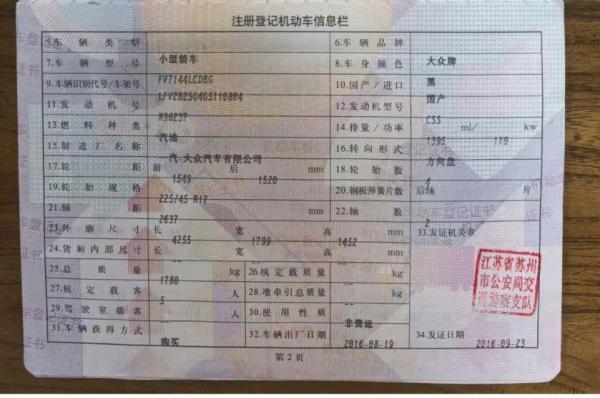 注册登记机动车信息栏
5.车辆类型 小型轿车 6.车辆品牌 大众牌
7.车辆型号 FV7144LCDBG 8.车身颜色 黑
9.车辆识别代号/车架号 10.国产/进口 国产
11.发动机号 12.发动机型号 CSS
13.燃料种类 汽油 14.排量/功率 1395 ml/ 110 kw
15.制造厂名称 汽-大众汽车有限公司 16.转向形式 方向盘
17.轮距 前 1549 后 1520 mm 18.轮胎数 4
19.轮胎规格 225/45 R17 20.钢板弹簧片数 后轴 片
21.轴距 2637 mm 22.轴数 2
23.外廓尺寸 长 4255 宽 1799 高 1452 mm 33.发证机关章
24.货厢内部尺寸 长 宽 高 mm
江苏省苏州
市公安局交
通警察支队
25.总质量 1780 kg 26.核定载质量 kg
27.核定载客 5 人 28.准牵引总质量 kg
29.驾驶室载客 人 30.使用性质 非营运
31.车辆获得方式 购买 32.车辆出厂日期 2016-08-19 34.发证日期 2016-09-23
第 2 页